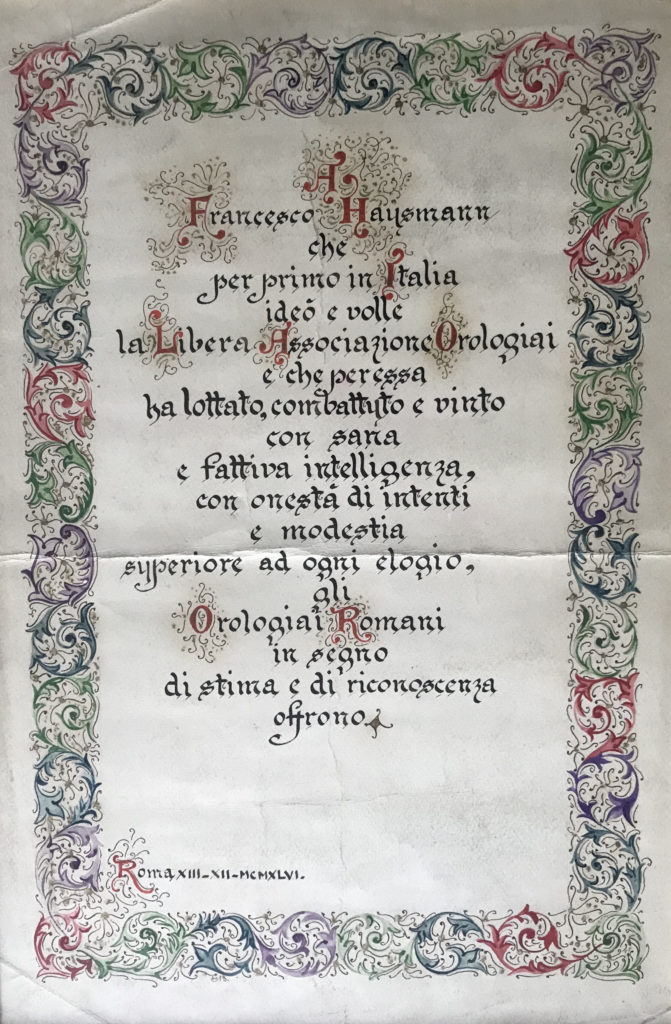 A
Francesco Hausmann
che
per primo in Italia
ideò e volle
la Libera Associazione Orologiai
e che per essa
ha lottato, combattuto e vinto
con sana
e fattiva intelligenza,
con onestà di intenti
e modestia
superiore ad ogni elogio,
gli
Orologiai Romani
in segno
di stima e di riconoscenza
offrono
Roma XIII-XII-MCMXLVI.